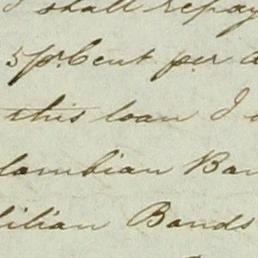 I shall repay
5 pr Cent per a
this loan I
lambian Ban
ilian Bonds